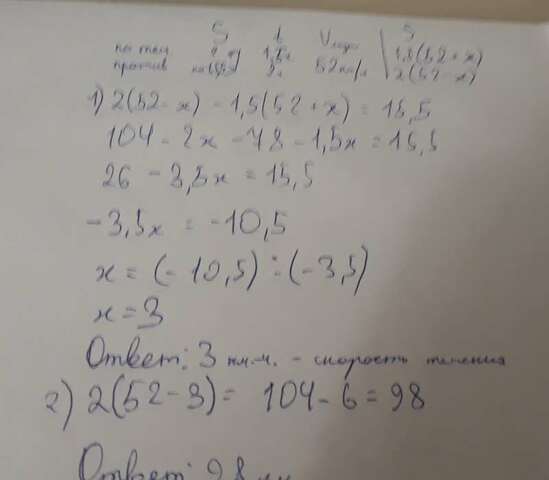 S t Vлодки S
по теч. 1,5ч 1,5(52+x)
против 2ч 52км/ч 2(52-x)
1) 2(52-x) - 1,5(52+x) = 15,5
104 - 2x - 78 - 1,5x = 15,5
26 - 3,5x = 15,5
-3,5x = -10,5
x = (-10,5) : (-3,5)
x = 3
Ответ: 3 км.ч. - скорость течения
2) 2(52-3) = 104 - 6 = 98
Ответ: 98 км